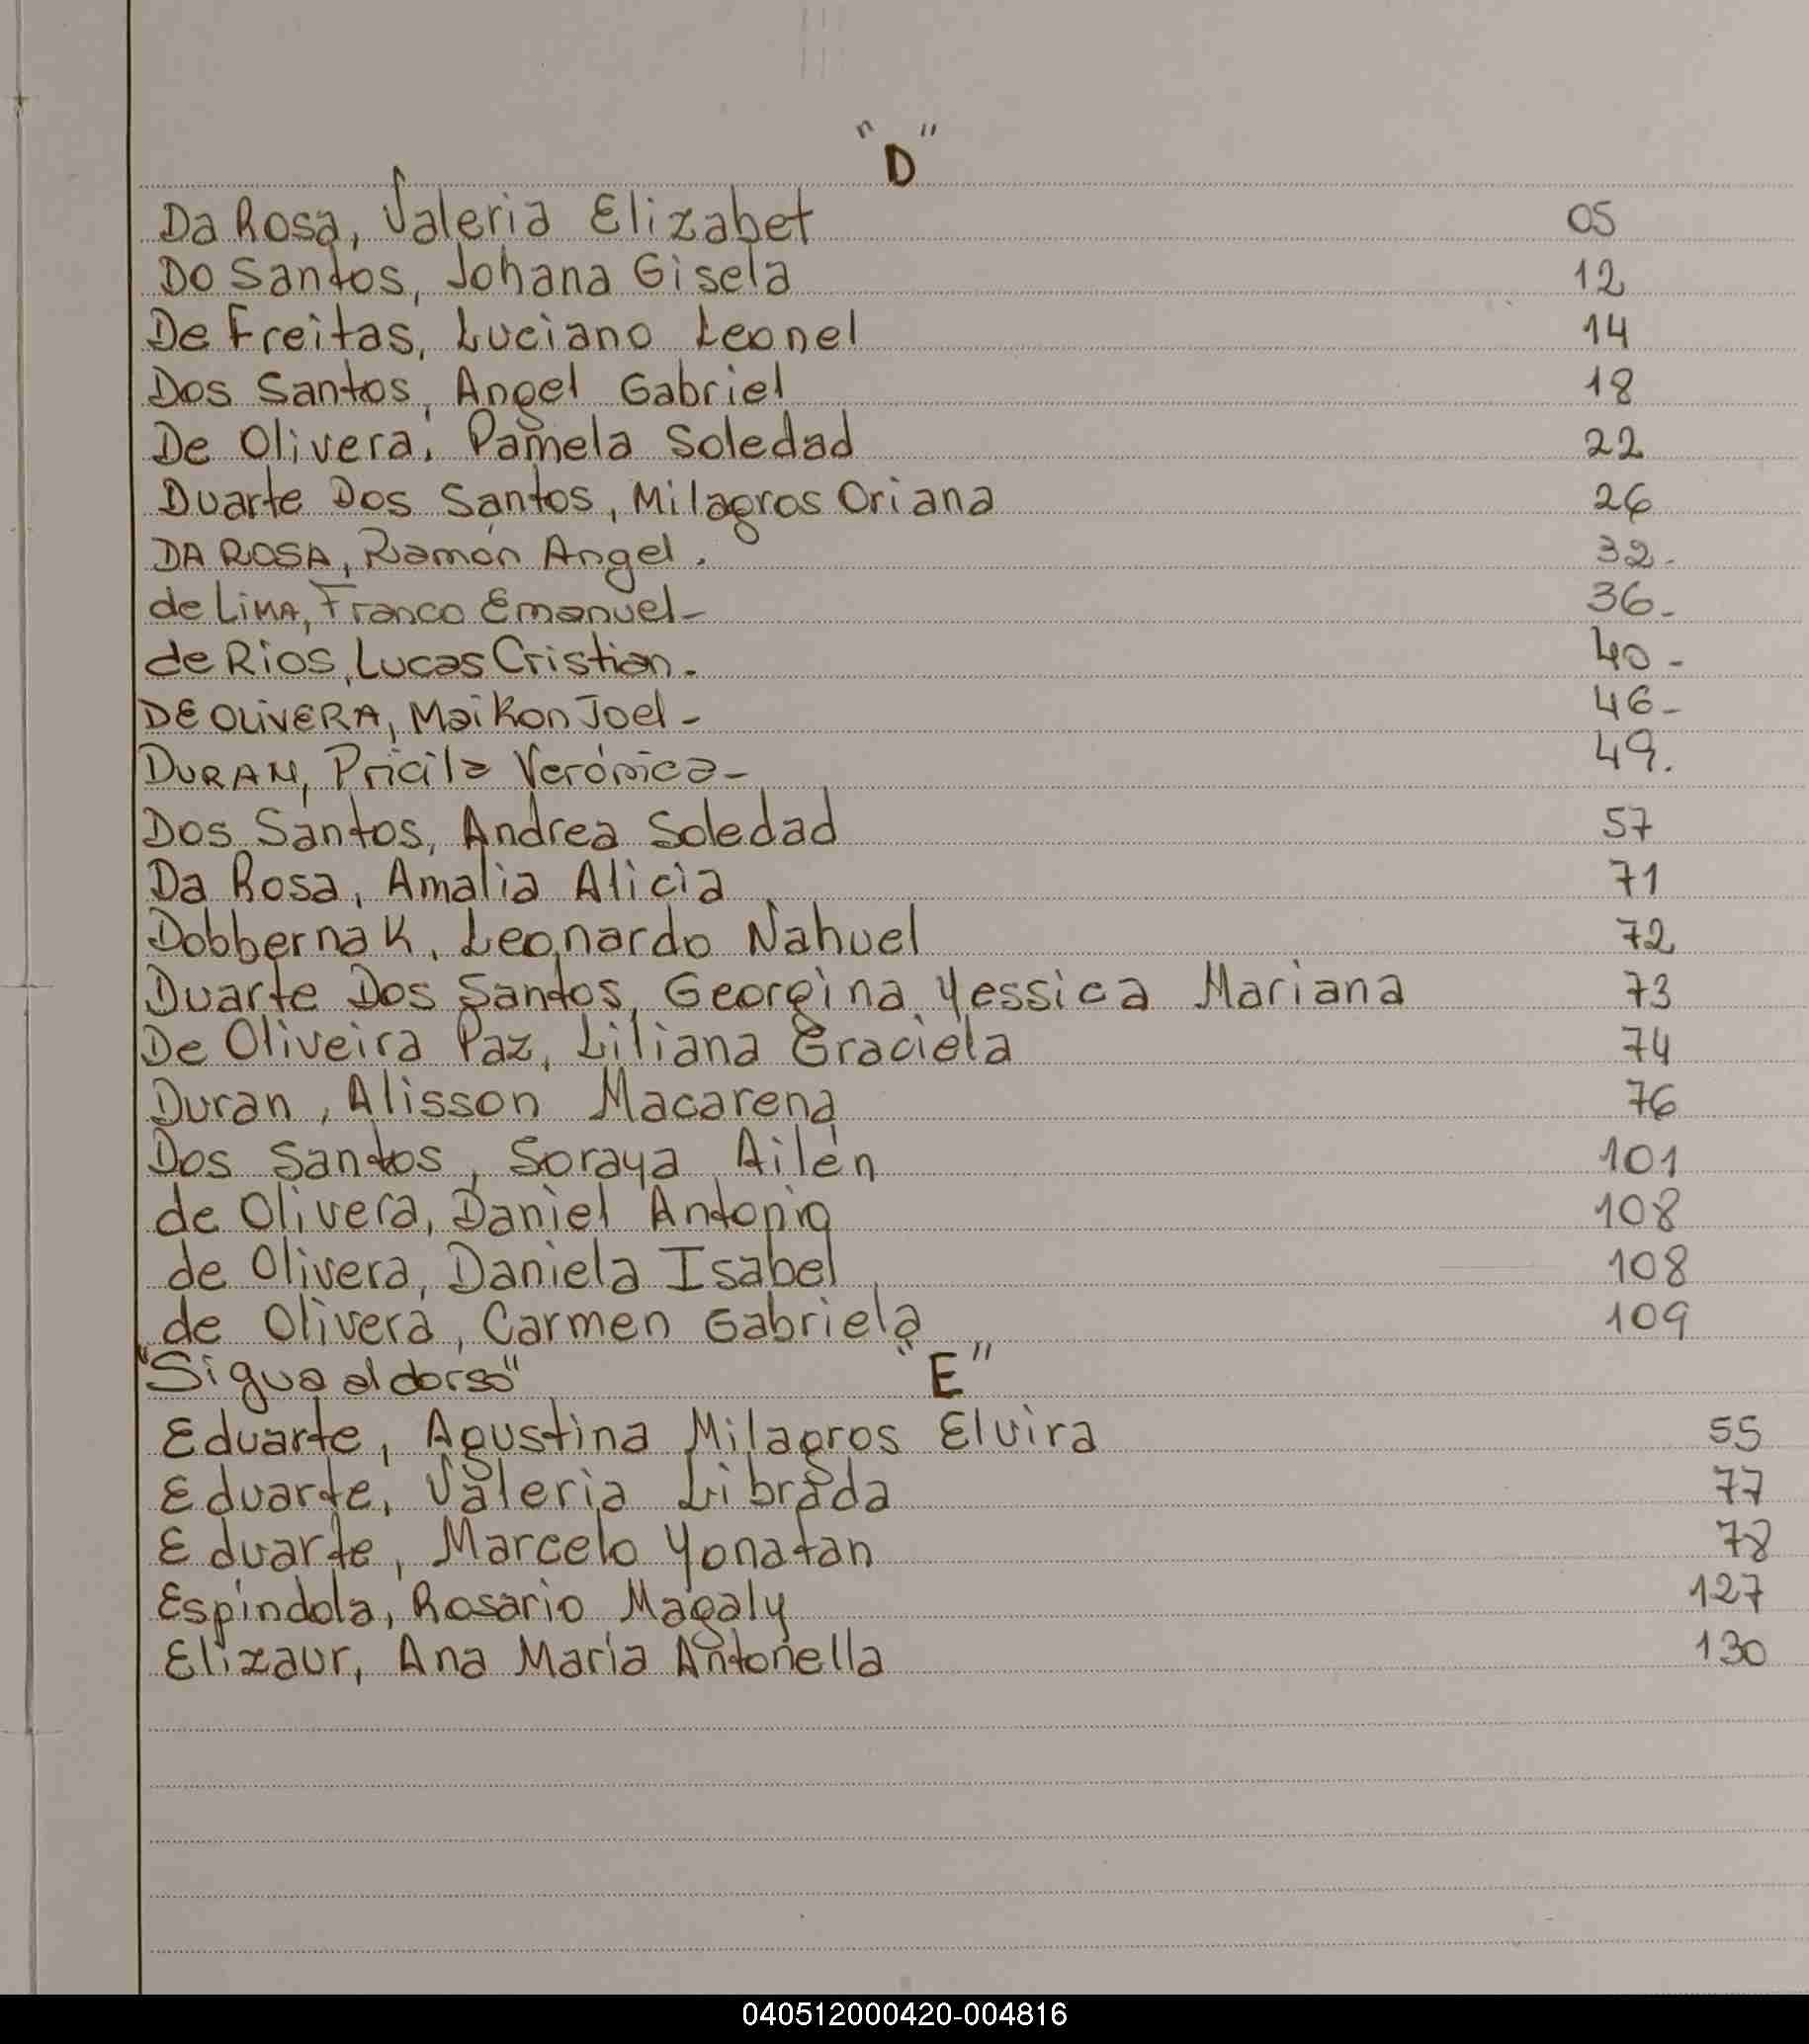 "D"
Da Rosa, Valeria Elizabet 05
Do Santos, Johana Gisela 12
De Freitas, Luciano Leonel 14
Dos Santos, Angel Gabriel 18
De Olivera, Pamela Soledad 22
Duarte Dos Santos, Milagros Oriana 26
DA ROSA, Ramón Angel. 32-
de LiMA, Franco Emanuel- 36-
de Ríos, Lucas Cristian. 40-
DE OLiVERA, Maikon Joel- 46-
DURAN, Pricila Verónica- 49.
Dos Santos, Andrea Soledad 57
Da Rosa, Amalia Alicia 71
Dobbernak, Leonardo Nahuel 72
Duarte Dos Santos, Georgina Yessica Mariana 73
De Oliveira Paz, Liliana Graciela 74
Duran, Alisson Macarena 76
Dos Santos, Soraya Ailén 101
de Olivera, Daniel Antonio 108
de Olivera, Daniela Isabel 108
de Olivera, Carmen Gabriela 109
"Sigua al dorso" "E"
Eduarte, Agustina Milagros Elvira 55
Eduarte, Valeria Librada 77
Eduarte, Marcelo Yonatan 78
Espíndola, Rosario Magaly 127
Elizaur, Ana María Antonella 130
040512000420-004816